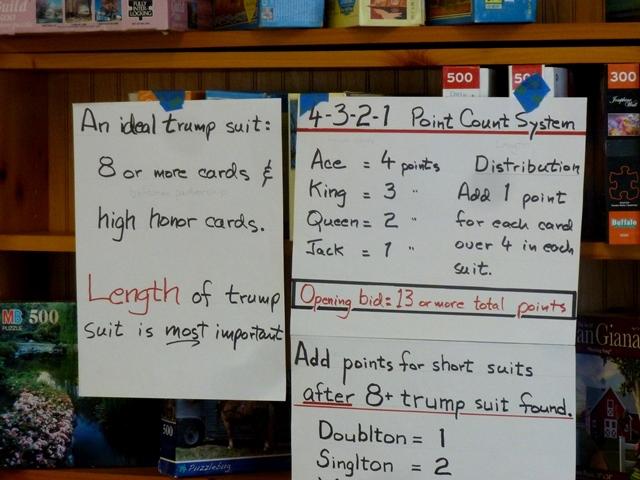 Build
FULLY INTER-LOCKING
500
300
Buffalo
An ideal trump suit:
8 or more cards &
high honor cards.
Length of trump
suit is most important
4-3-2-1 Point Count System
Ace = 4 points
King = 3 "
Queen = 2 "
Jack = 1 "
Distribution
Add 1 point
for each card
over 4 in each
suit.
Opening bid: 13 or more total points
Add points for short suits
after 8+ trump suit found.
Doublton = 1
Singlton = 2
MB 500
PUZZLE
500
Puzzlebug